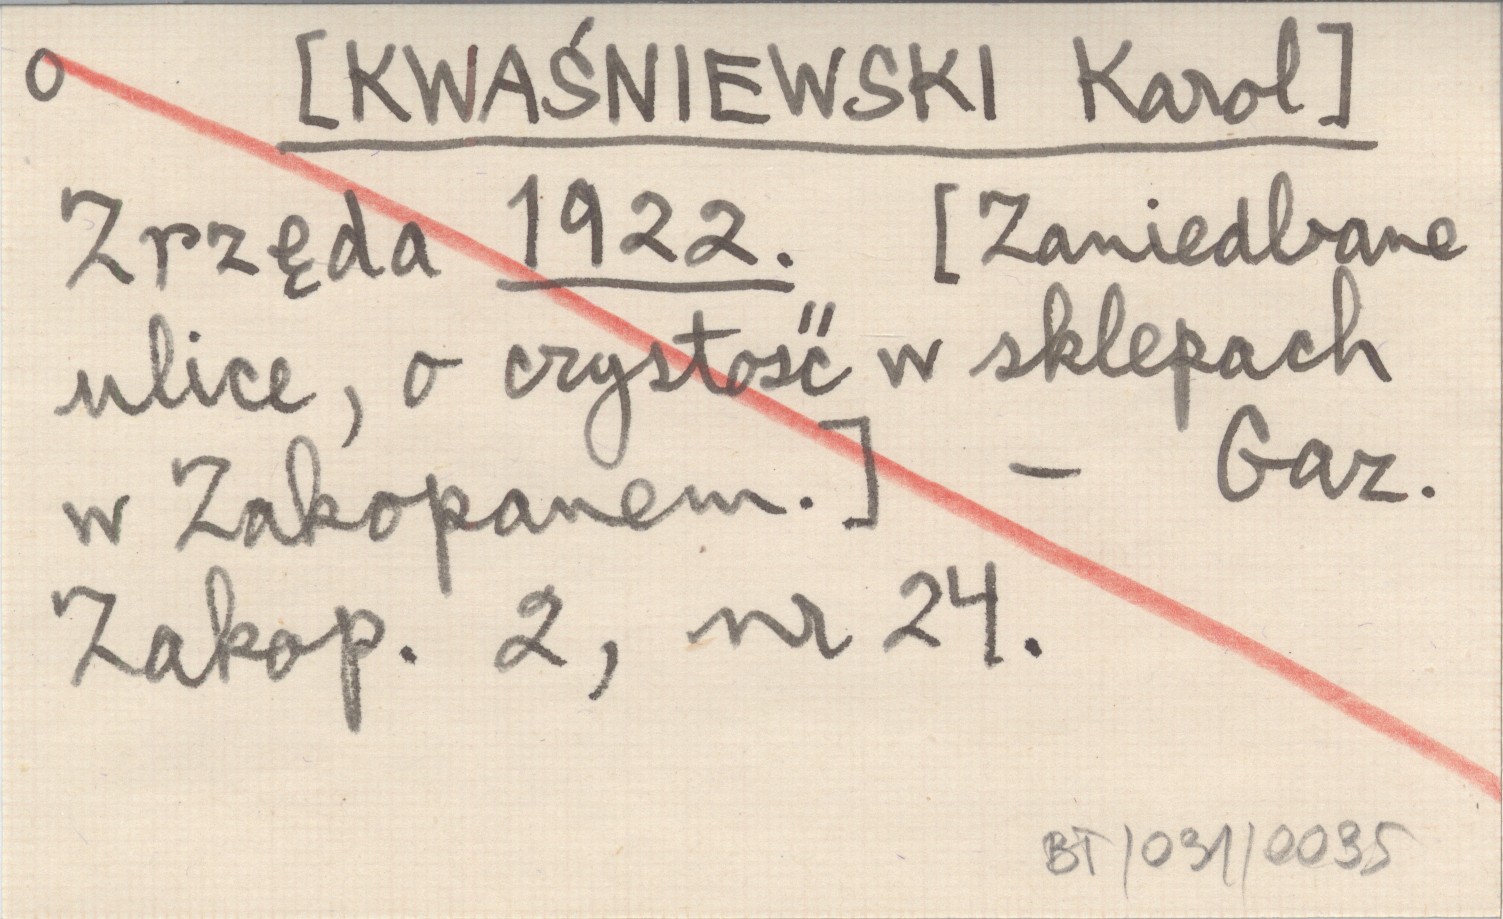 o [KWAŚNIEWSKI Karol]
Zrzęda 1922. [Zaniedbane
ulice, o czystość w sklepach
w Zakopanem.] – Gaz.
Zakop. 2, nr 24.
BT/031/0035